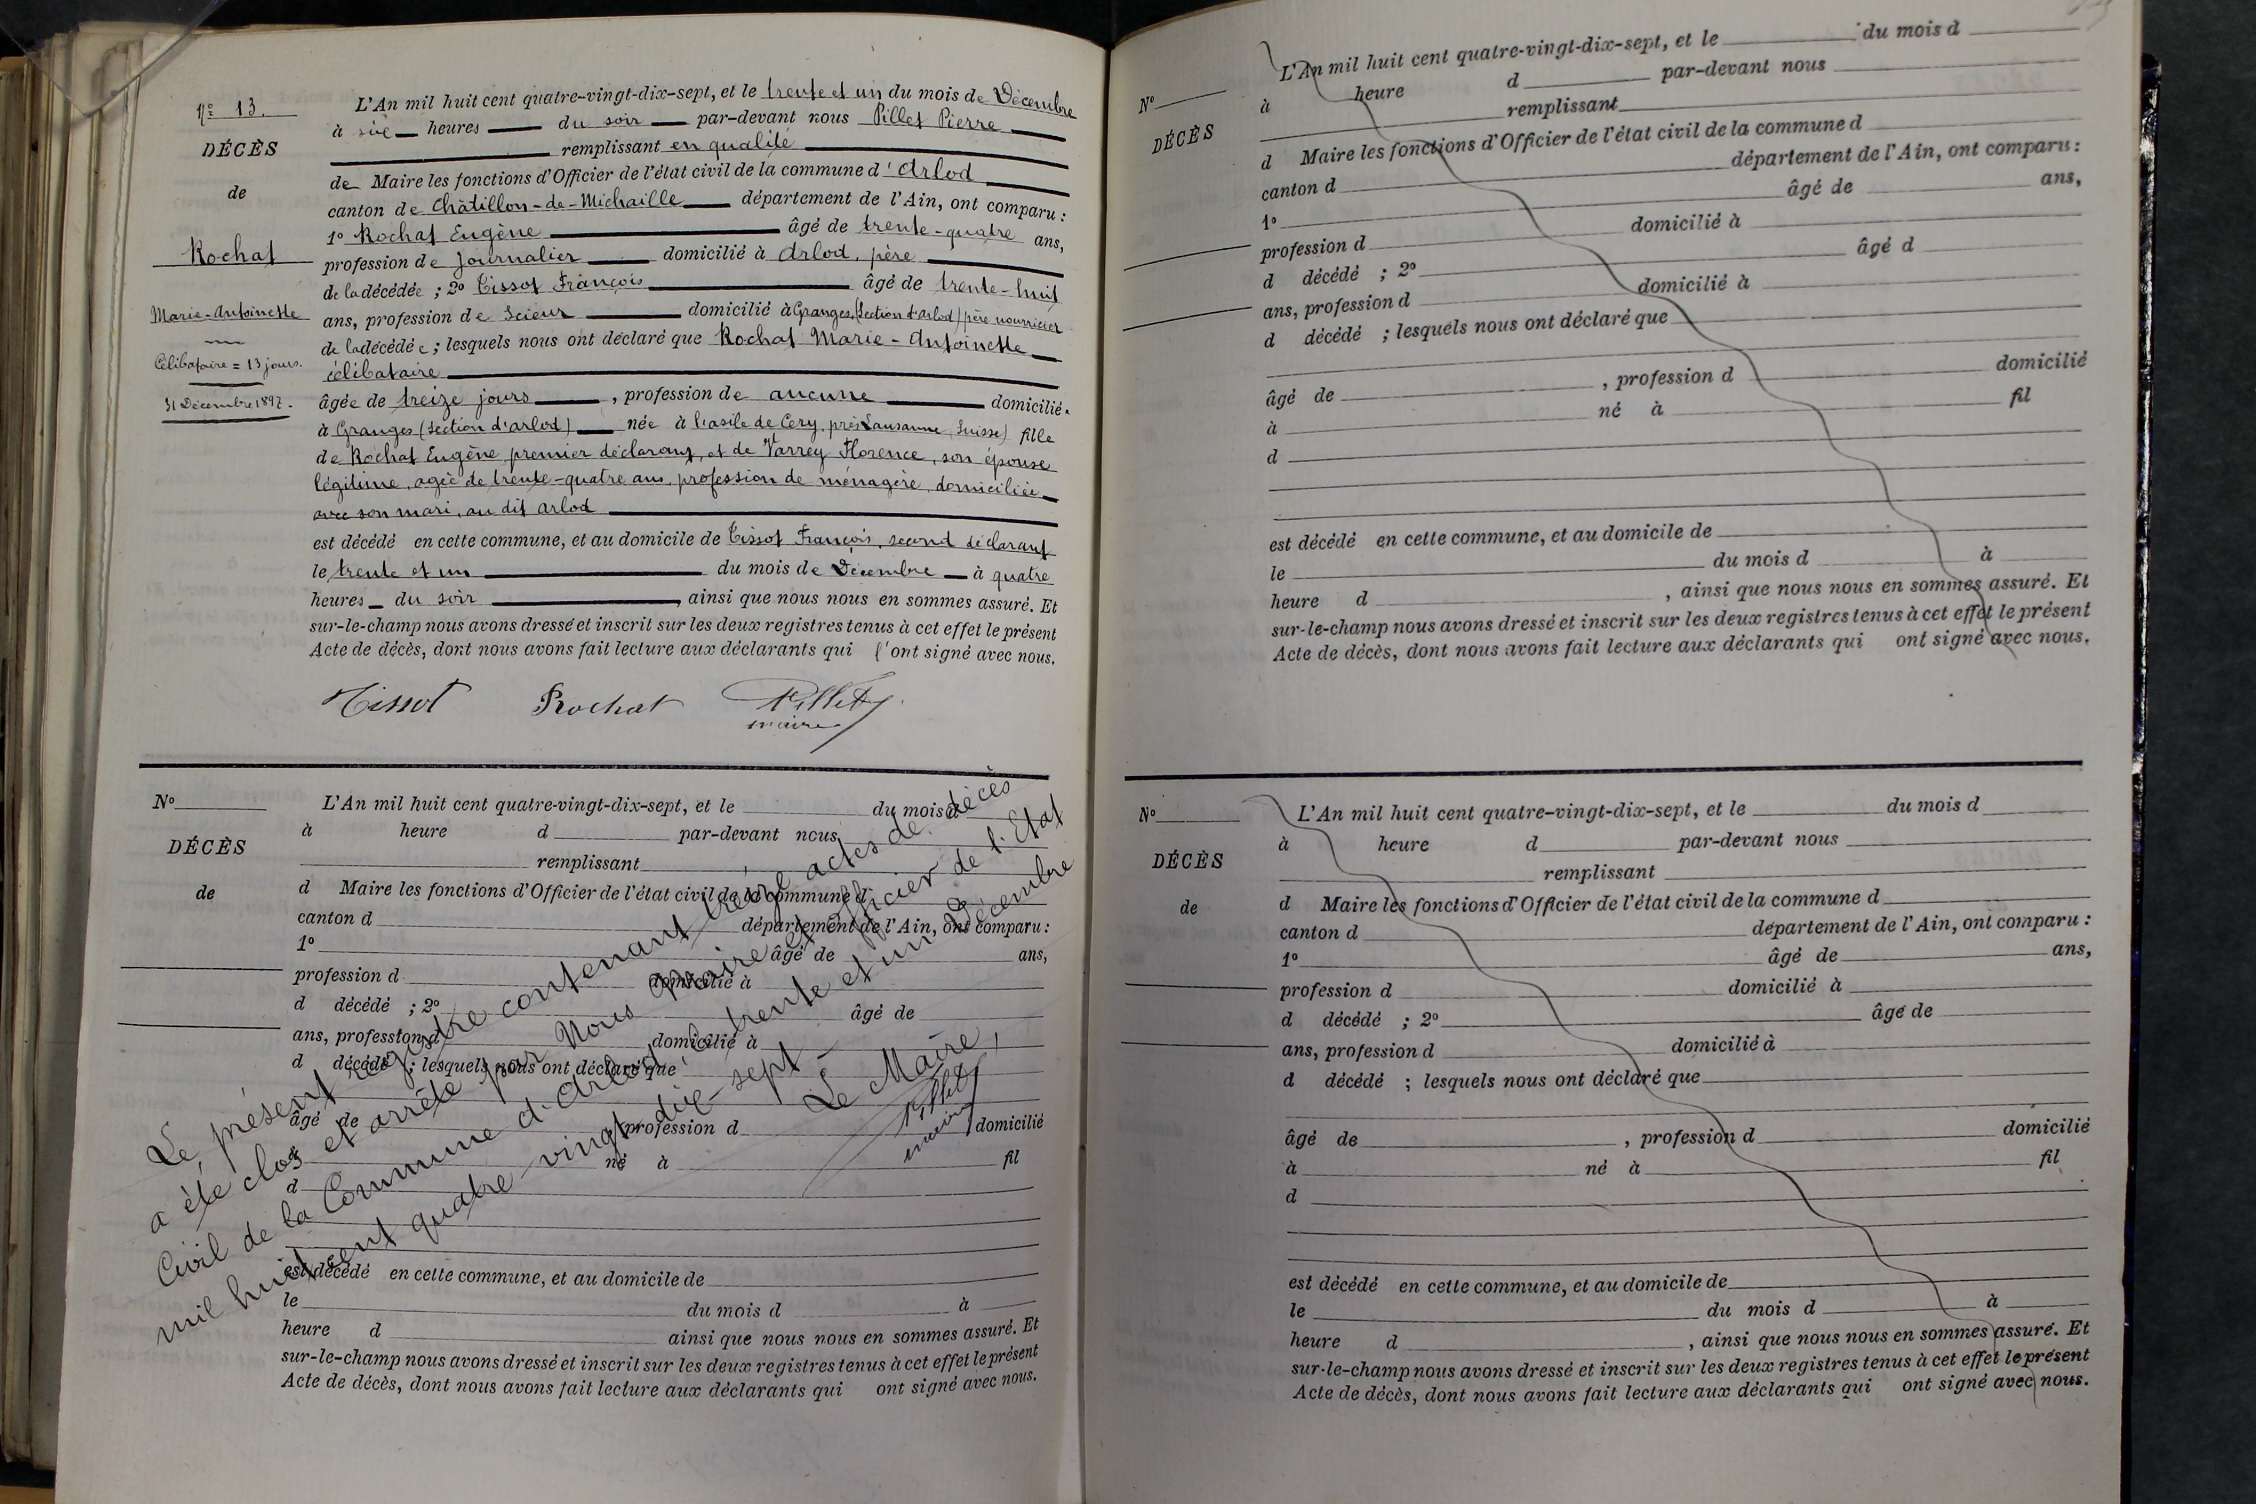 N° 13.
DÉCÈS
de
Rochat
Marie-Antoinette
Célibataire = 13 jours.
31 Décembre 1897.
L'An mil huit cent quatre-vingt-dix-sept, et le trente et un du mois de Décembre
à six heures du soir par-devant nous Pillet Pierre
remplissant en qualité
de Maire les fonctions d'Officier de l'état civil de la commune d'Arlod
canton de Châtillon-de-Michaille département de l'Ain, ont comparu :
1° Rochat Eugène âgé de trente-quatre ans,
profession de journalier domicilié à Arlod, père
de la décédée ; 2° Tissot François âgé de trente-huit
ans, profession de Scieur domicilié à Granges, (Section d'Arlod) père nourricier
de la décédée ; lesquels nous ont déclaré que Rochat Marie-Antoinette
célibataire
âgée de treize jours, profession de aucune domiciliée
à Granges (Section d'arlod) née à l'asile de Cery, près Lausanne, Suisse) fille
de Rochat Eugène, premier déclarant, et de Varrey Florence, son épouse
légitime, agée de trente-quatre ans, profession de ménagère, domiciliée
avec son mari, au dit Arlod
est décédé en cette commune, et au domicile de Tissot François, second déclarant
le trente et un du mois de Décembre à quatre
heures du soir, ainsi que nous nous en sommes assuré. Et
sur-le-champ nous avons dressé et inscrit sur les deux registres tenus à cet effet le présent
Acte de décès, dont nous avons fait lecture aux déclarants qui l'ont signé avec nous.
Tissot Rochat Pillet
maire
N°
DÉCÈS
de
L'An mil huit cent quatre-vingt-dix-sept, et le du mois d
à heure d par-devant nous
remplissant
d Maire les fonctions d'Officier de l'état civil de la commune d
canton d département de l'Ain, ont comparu :
1° âgé de ans,
profession d domicilié à
d décédé ; 2° âgé de
ans, profession d domicilié à
d décédé ; lesquels nous ont déclaré que
âgé de , profession d domicilié
à né à fil
d
est décédé en cette commune, et au domicile de
le du mois d à
heure d ainsi que nous nous en sommes assuré. Et
sur-le-champ nous avons dressé et inscrit sur les deux registres tenus à cet effet le présent
Acte de décès, dont nous avons fait lecture aux déclarants qui ont signé avec nous.
Le présent registre contenant treize actes de décès
a été clos et arrêté par Nous Maire et officier de l'Etat
Civil de la Commune d'Arlod, le trente et un Décembre
mil huit cent quatre-vingt-dix-sept.
Le Maire,
Pillet
maire
N°
DÉCÈS
L'An mil huit cent quatre-vingt-dix-sept, et le du mois d
à heure d par-devant nous
remplissant
d Maire les fonctions d'Officier de l'état civil de la commune d
canton d département de l'Ain, ont comparu :
1° âgé de ans,
profession d domicilié à
d décédé ; 2° âgé d
ans, profession d domicilié à
d décédé ; lesquels nous ont déclaré que
âgé de , profession d domicilié
à né à fil
d
est décédé en cette commune, et au domicile de
le du mois d à
heure d , ainsi que nous nous en sommes assuré. Et
sur-le-champ nous avons dressé et inscrit sur les deux registres tenus à cet effet le présent
Acte de décès, dont nous avons fait lecture aux déclarants qui ont signé avec nous.
N°
DÉCÈS
de
L'An mil huit cent quatre-vingt-dix-sept, et le du mois d
à heure d par-devant nous
remplissant
d Maire les fonctions d'Officier de l'état civil de la commune d
canton d département de l'Ain, ont comparu :
1° âgé de ans,
profession d domicilié à
d décédé ; 2° âgé de
ans, profession d domicilié à
d décédé ; lesquels nous ont déclaré que
âgé de , profession d domicilié
à né à fil
d
est décédé en cette commune, et au domicile de
le du mois d à
heure d , ainsi que nous nous en sommes assuré. Et
sur-le-champ nous avons dressé et inscrit sur les deux registres tenus à cet effet le présent
Acte de décès, dont nous avons fait lecture aux déclarants qui ont signé avec nous.